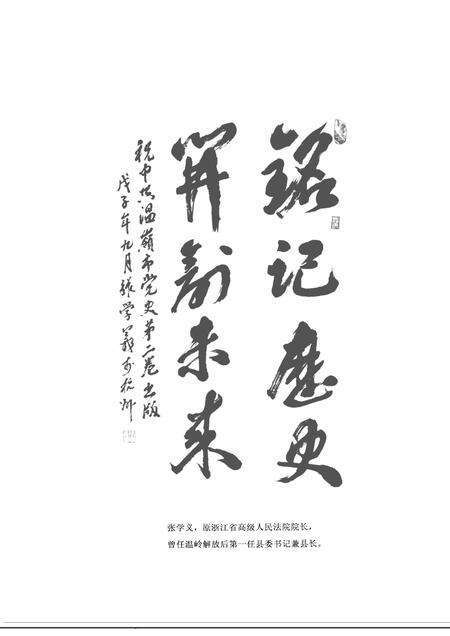 铭记歷史
開創未来
祝中共温嶺市党史第二卷出版
戊子年九月張学義於杭州
张学义，原浙江省高级人民法院院长，
曾任温岭解放后第一任县委书记兼县长。